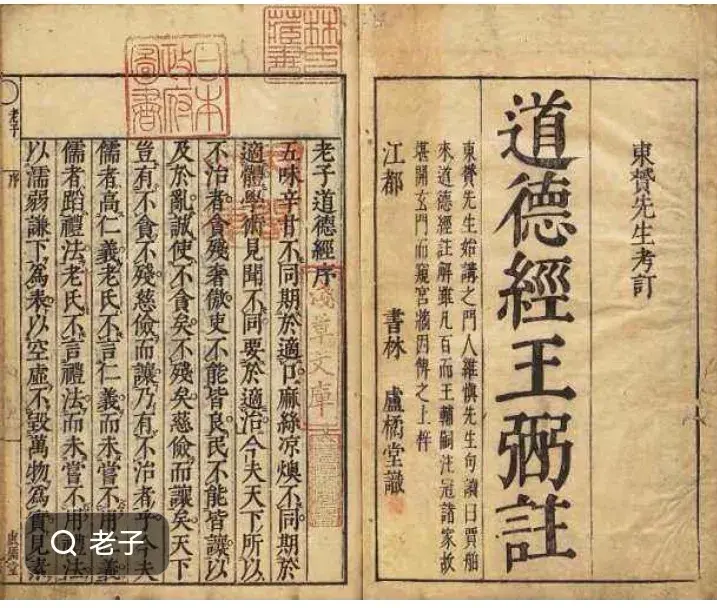 東贇先生考訂
道德經王弼註
東贇先生始講之門人維慎先生句讀日買舶
來道德經註解雖凡百而王輔嗣注冠諸家故
堪開玄門而窺宮牆因傳之上梓
江都 書林 盧橘堂識
林氏藏書
日本政府圖書
淺草文庫
老子道德經序
五味辛甘不同期於適口麻絲凉燠不同期於
適體學術見聞不同要於適治今夫天下所以
不治者貪殘奢傲吏不能皆良民不能皆讓以
及於亂誠使不貪矣不殘矣慈儉而讓矣天下
豈有不貪不殘慈儉而讓乃有不治者乎今夫
儒者高仁義老氏不言仁義而未嘗不用仁義
儒者蹈禮法老氏不言禮法而未嘗不用禮法
以濡弱謙下為表以空虛不毀萬物為實見素
老子 序
老子